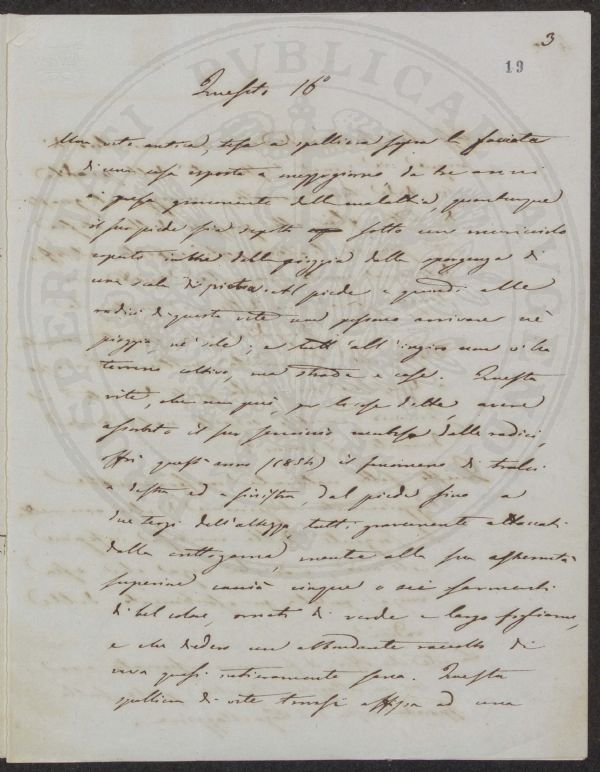 3
19
Quesito 16°
Una vite antica, tesa a spalliera sopra la facciata
di una casa esposta a mezzogiorno da tre anni
è presa gravemente dalla malattia, quantunque
il suo piede sia sotto un
coperto anche dalla pioggia dalla sporgenza di
una scala di pietra. Al piede e quindi alle
radici di questa vite non possono arrivare nè
pioggia nè sole; e tutt'all'ingiro non vi ha
terreno coltivo, ma strade e case. Questa
vite, che non può, per le cose dette, avere
assorbito il suo dalle radici,
offrì quest'anno (1854) il fenomeno di tralci
a destra ed a sinistra, dal piede fino a
due terzi dell'altezza, tutti gravemente attaccati
dalla crittogama, mentre alla sua estremità
superiore cacciò cinque o sei sarmenti
di bel colore, ornati di verde e largo fogliame,
e che diedero un abbondante raccolto di
uva quasi intieramente sana. Questa
spalliera di vite trovasi affissa ad una